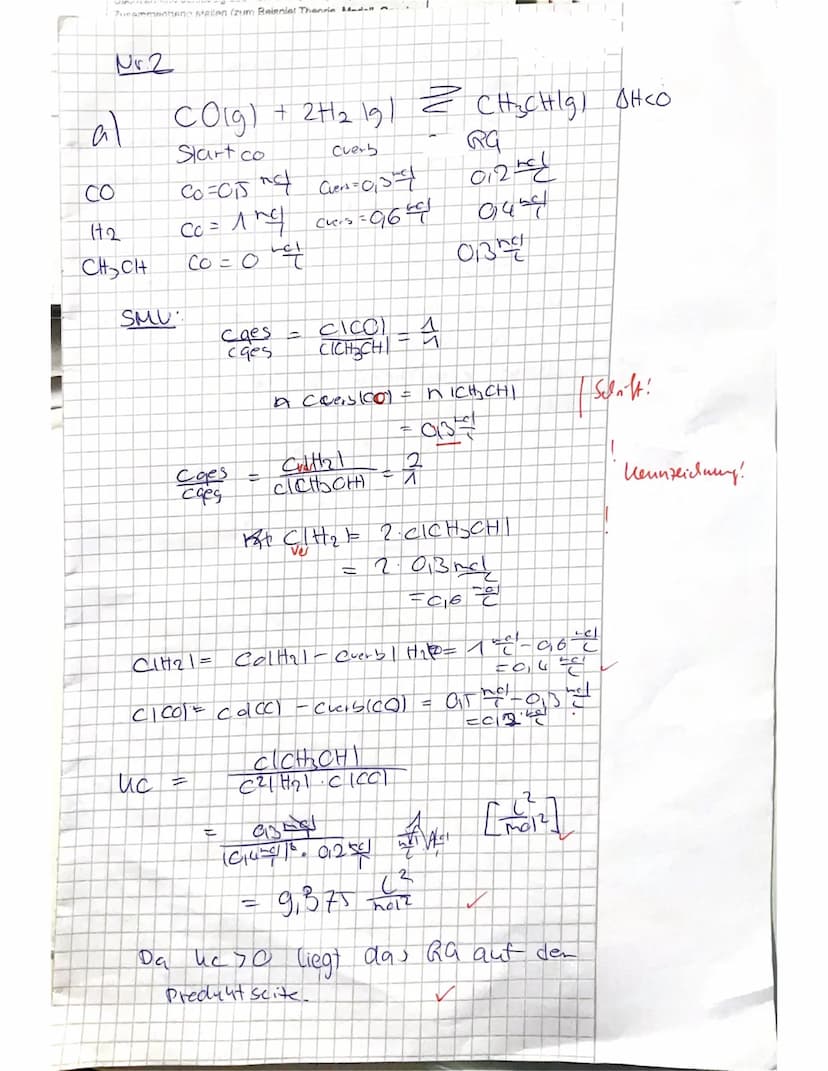 Zusammenhang stellen (zum Beispiel Theorie, Modell
Nr. 2
a) CO(g) + 2H2(g) ⇌ CH3OH(g) ΔH<0
Start c0 cverb GG
CO c0=0,5 mol/L cverb=0,3 mol/L 0,2 mol/L
H2 c0= 1 mol/L cverb=0,6 mol/L 0,4 mol/L
CH3OH c0 = 0 mol/L 0,3 mol/L
SMV:
cges/cges = c(CO)/c(CH3OH) = 1/1
n cverb(CO) = n(CH3OH) Schrift!
= 0,3 mol/L
cges/cges = cverb(H2)/c(CH3OH) = 2/1 ! Kennzeichnung!
c(H2)= 2·c(CH3OH) !
ver
= 2· 0,3 mol/L
=0,6 mol/L
c(H2)= c0(H2)-cverb(H2)= 1 mol/L - 0,6 mol/L
=0,4 mol/L
c(CO)= c0(CO) -cverb(CO) = 0,5 mol/L - 0,3 mol/L
=0,2 mol/L
Kc = c(CH3OH)/c²(H2)·c(CO)
= 0,3 mol/(0,4 mol/L)² · 0,2 mol/L [L²/mol²]
= 9,375 L²/mol²
Da Kc >0 liegt das GG auf der
Produktseite.